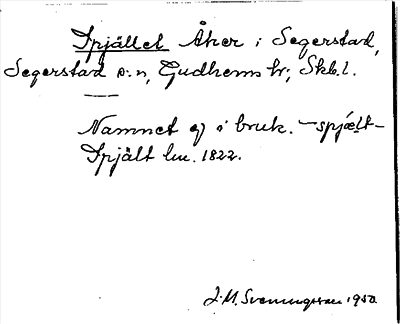 Spjället Åker i Segerstad,
Segerstad s:n, Gudhems hr; Skb.l.
Namnet ej i bruk. – spjælt –
Spjält lm. 1822.
J. M. Svenungsson 1950.